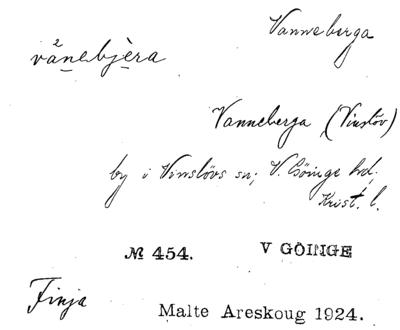 Vanneberga
vånebjèra
Vanneberga (Vinslöv)
by i Vinslövs sn; V. Göinge hd,
Krist. l.
№ 454. V GÖINGE
Finja
Malte Areskoug 1924.